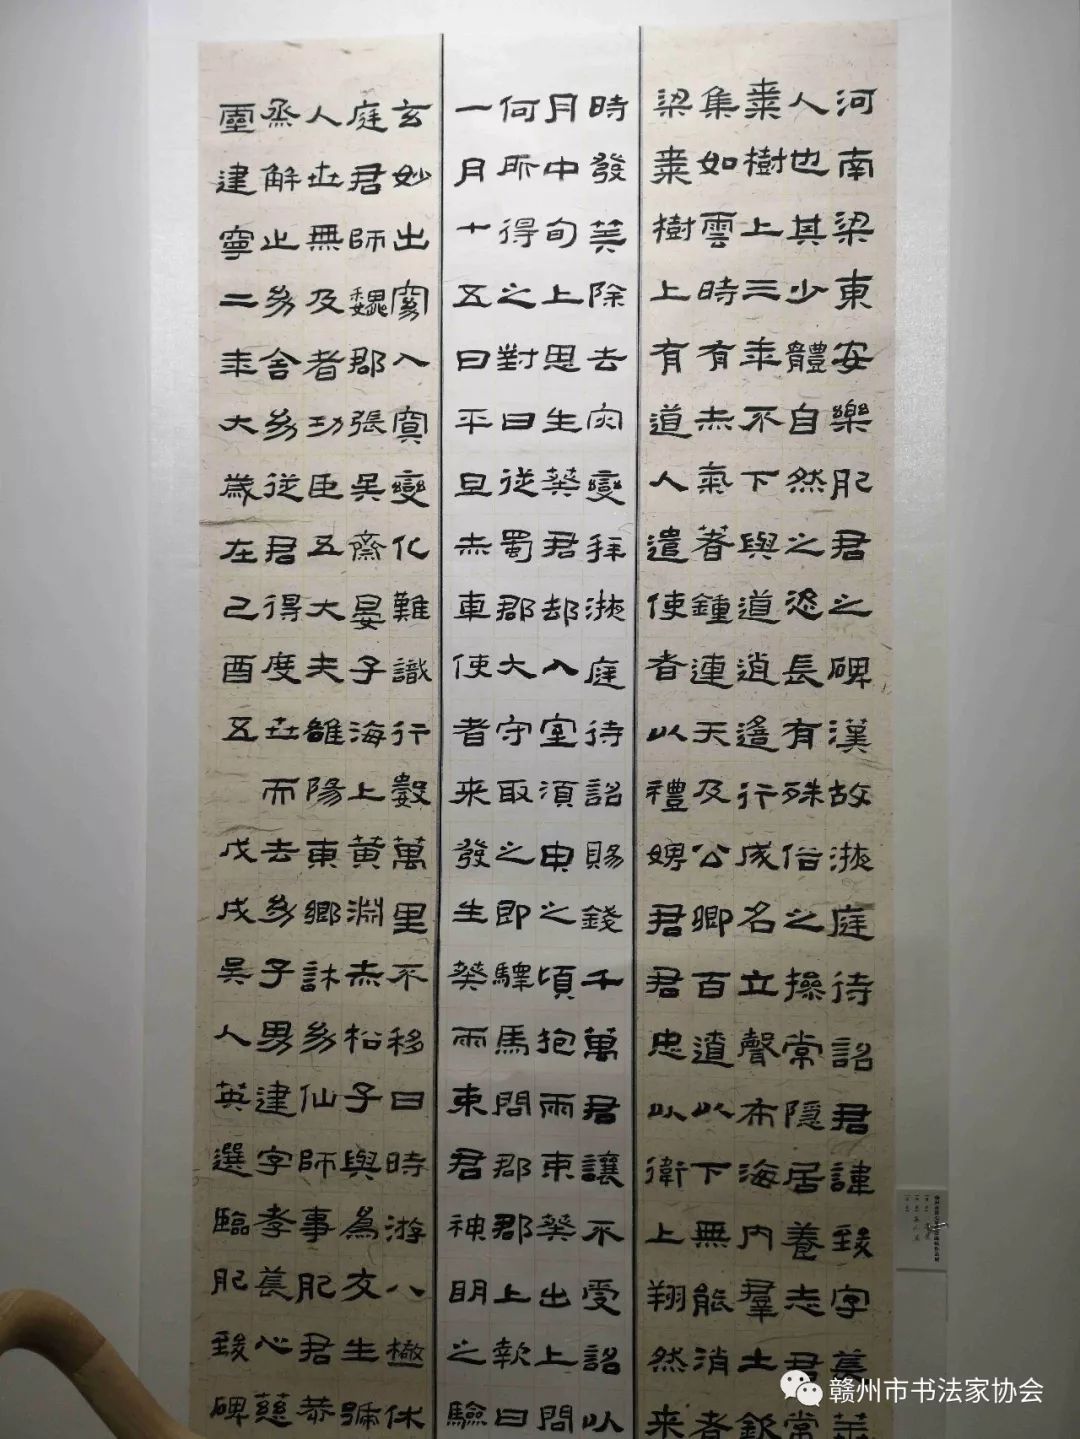 河南梁東安樂肥君之碑漢故掖庭待詔君諱致字萇華
人也其少體自然之恣長有殊俗之操常隱居養志君常
棗樹上三年不下與道逍遙行成名立聲布海內羣士欽
集如雲時有赤氣著鍾連天及公卿百遣以下無能消者
梁棗樹上有道人遣使者以禮娉君君忠以衛上翔然来
時發筭除去灾變拜掖庭待詔賜錢千萬君讓不受詔以
月中旬上思生葵君却入室須臾之頃抱兩束葵出上問
何所得之對曰從蜀郡大守取之即驛馬問郡郡上報曰
一月十五日平旦赤車使者来發生葵兩束君神明之驗
玄妙出窈入冥變化難識行數萬里不移日時游八極休
庭君師魏郡張吳齋晏子海上黃淵赤松子與為友生號
人世無及者功臣五大夫雒陽東鄉許幼仙師事肥君恭
烝解止幼舍幼從君得度世而去幼子男建字孝萇心慈
靈建寧二年大歲在己酉五
戊戌吳人英選臨肥致碑
赣州市书法家协会